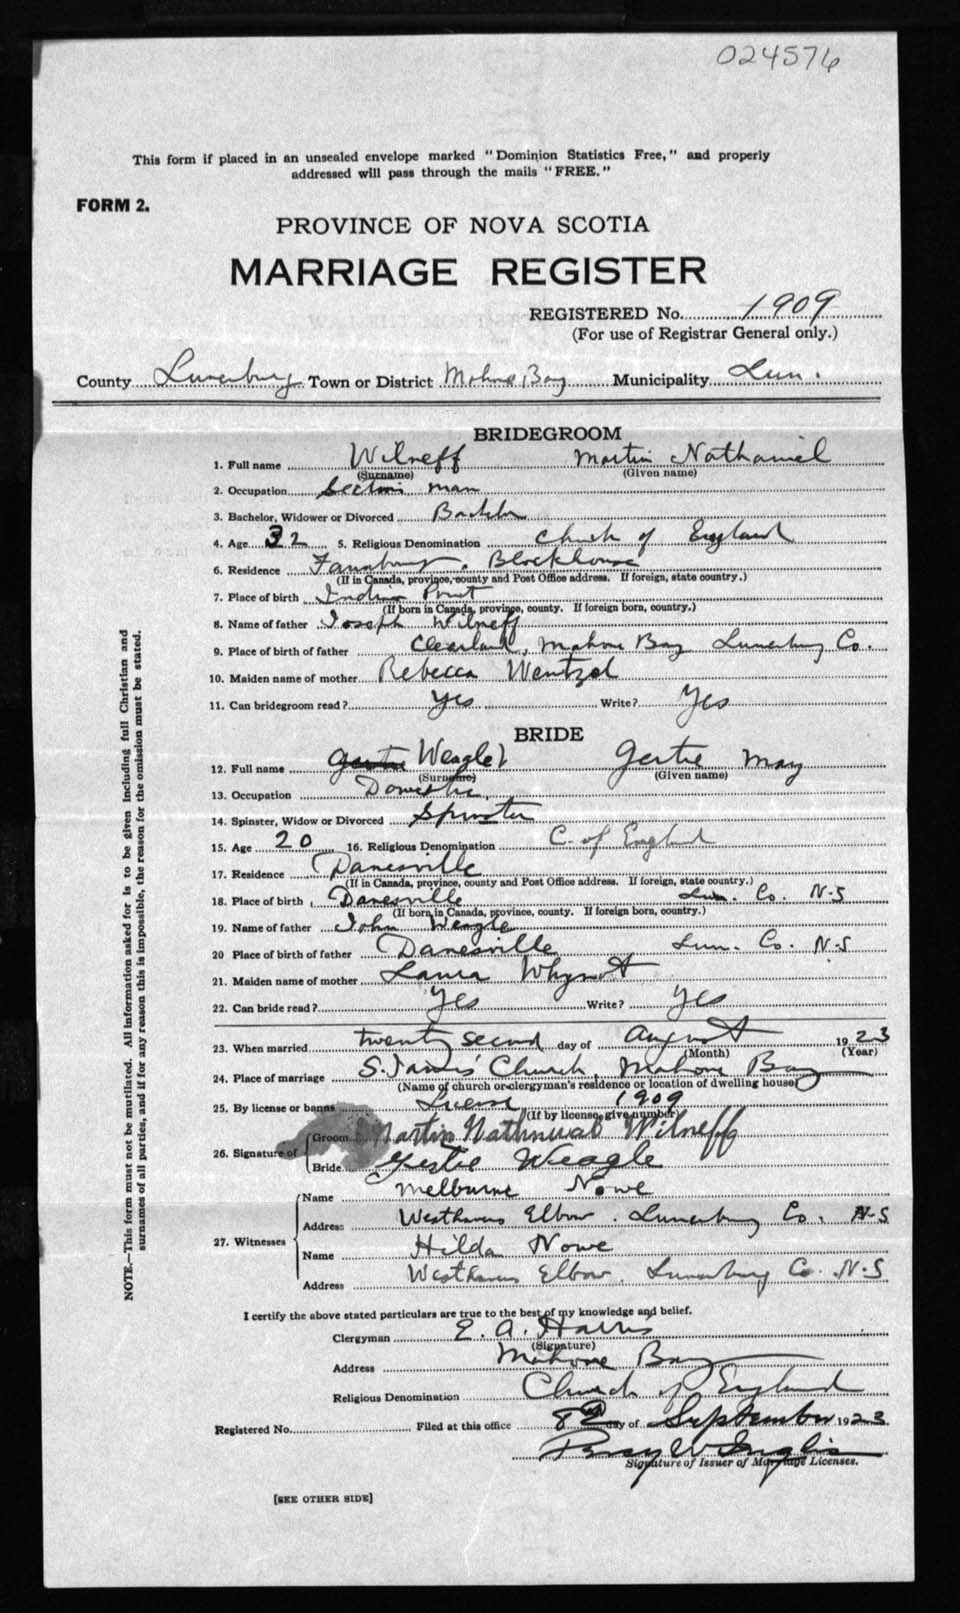 024576
This form if placed in an unsealed envelope marked "Dominion Statistics Free," and properly
addressed will pass through the mails "FREE."
FORM 2.
PROVINCE OF NOVA SCOTIA
MARRIAGE REGISTER
REGISTERED No. 1909
(For use of Registrar General only.)
County Lunenburg Town or District Mahone Bay Municipality Lun.
BRIDEGROOM
1. Full name Wilneff Martin Nathaniel
(Surname) (Given name)
2. Occupation Section man
3. Bachelor, Widower or Divorced Bachelor
4. Age 32 5. Religious Denomination Church of England
6. Residence Fauxburg, Blockhouse
(If in Canada, province, county and Post Office address. If foreign, state country.)
7. Place of birth Indian Point
(If born in Canada, province, county. If foreign born, country.)
8. Name of father Joseph Wilneff
9. Place of birth of father Clearland, Mahone Bay Lunenburg Co.
10. Maiden name of mother Rebecca Wentzel
11. Can bridegroom read? Yes Write? Yes
BRIDE
12. Full name Gertie Weagle Gertie May
(Surname) (Given name)
13. Occupation Domestic
14. Spinster, Widow or Divorced Spinster
15. Age 20 16. Religious Denomination C. of England
17. Residence Danesville
(If in Canada, province, county and Post Office address. If foreign, state country.)
18. Place of birth Danesville Lun. Co. N-S
(If born in Canada, province, county. If foreign born, country.)
19. Name of father John Weagle
20 Place of birth of father Danesville Lun. Co. N-S
21. Maiden name of mother Laura Whynot
22. Can bride read? Yes Write? Yes
23. When married twenty second day of August 1923
(Month) (Year)
24. Place of marriage S. James' Church, Mahone Bay
(Name of church or clergyman's residence or location of dwelling house)
25. By license or banns License 1909
(If by license, give number)
26. Signature of Groom Martin Nathniual Wilneff
Bride Gertie Weagle
27. Witnesses
Name Melburne Nowe
Address Westhavers Elbow. Lunenburg Co. N-S
Name Hilda Nowe
Address Westhavers Elbow. Lunenburg Co. N-S
I certify the above stated particulars are true to the best of my knowledge and belief.
Clergyman E. A. Harris
(Signature)
Address Mahone Bay
Religious Denomination Church of England
Registered No. Filed at this office 8th day of September 1923.
Inglis
Signature of Issuer of Marriage Licenses.
[SEE OTHER SIDE]
NOTE.—This form must not be mutilated. All information asked for is to be given including full Christian and
surnames of all parties, and if for any reason this is impossible, the reason for the omission must be stated.